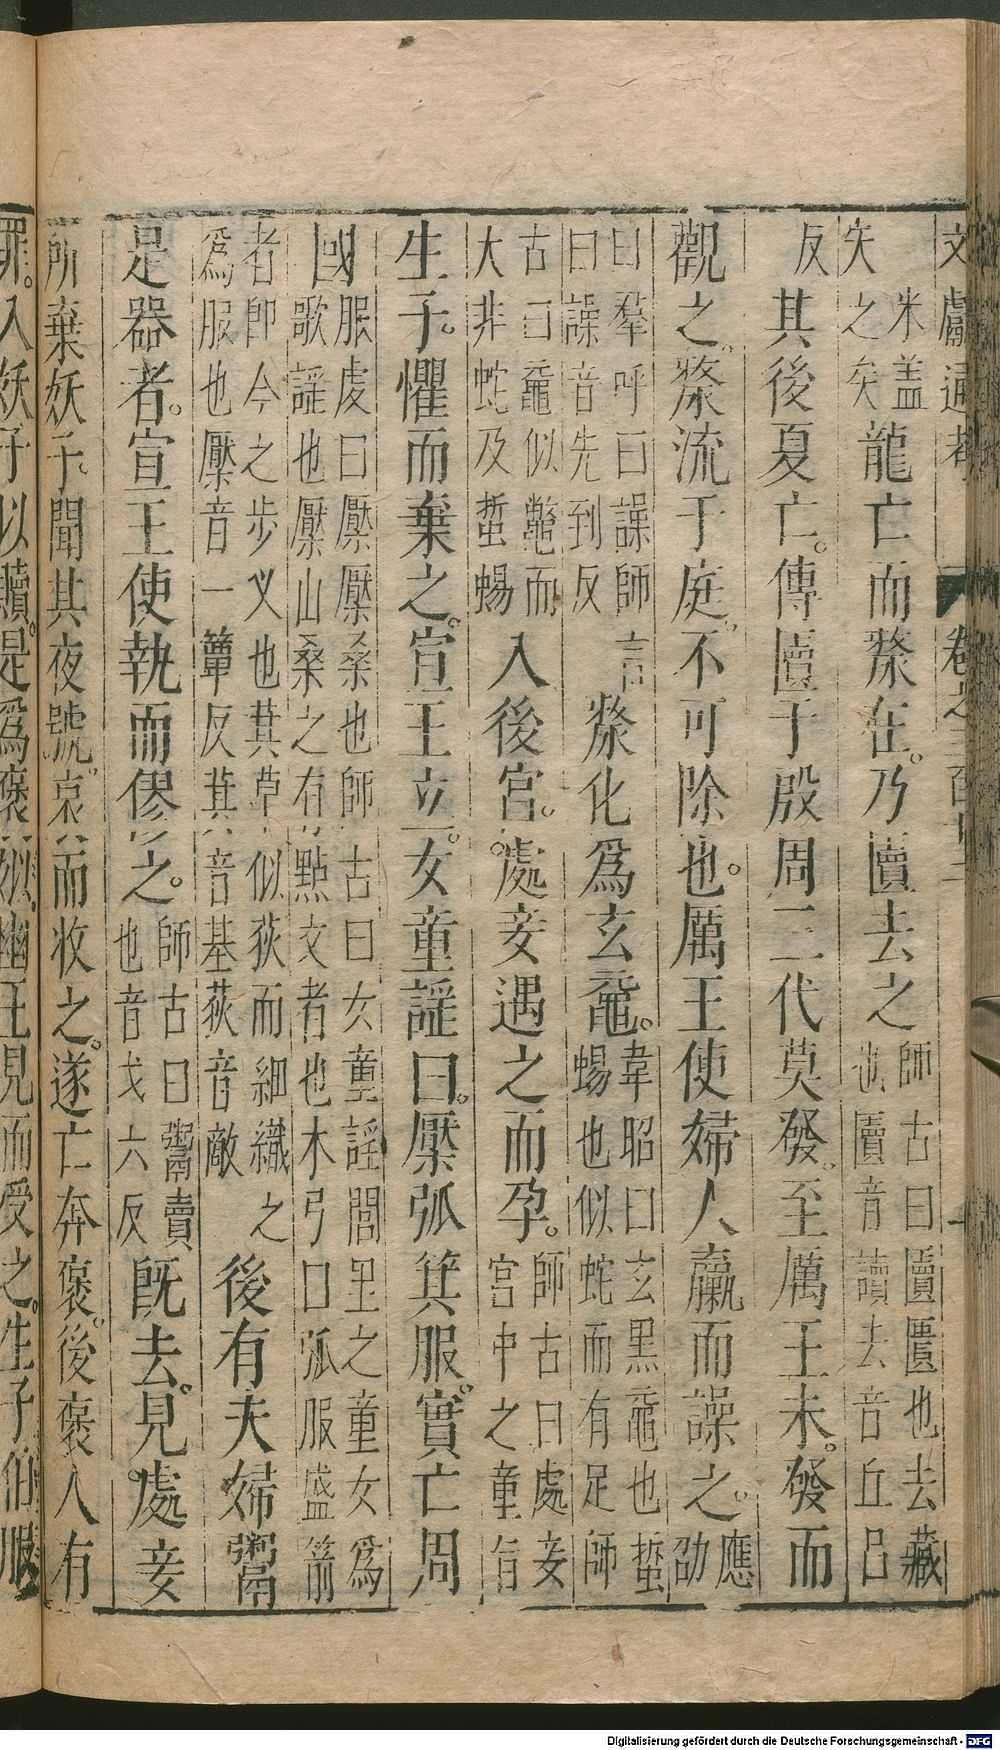 文獻通考 卷之三百
矢米盖
之矣
龍亡而漦在。乃匵去之
師古曰匵匱也去藏
也匵音讀去音丘呂
反其後夏亡。傳匵于殷周三代莫發。至厲王末。發而
觀之。漦流于庭。不可除也。厲王使婦人臝而譟之。
應
劭
曰羣呼曰譟師言
曰譟音先到反
漦化爲玄黿。
韋昭曰玄黑黿也蜇
蜴也似蛇而有足師
古曰黿似鼈而
大非蛇及蜇蜴
入後宮。處妾遇之而孕。
師古曰處妾
宮中之童㫖
生子。懼而棄之。宣王立。女童謡曰。檿弧箕服。實亡周
國
服虔曰檿檿桑也師古曰女童謡閭里之童女爲
歌謡也檿山桑之有點文者也木弓曰弧服盛箭
者卽今之步叉也萁草似荻而細織之
爲服也檿音一簟反萁音基荻音敵
後有夫婦鬻
是器者。宣王使執而僇之。
師古曰鬻賣
也音弋六反
旣去。見處妾
所棄妖子。聞其夜號。哀而收之。遂亡奔褒。後褒人有
罪。入妖子以贖。是爲褒姒。幽王見而受之。生子伯服
Digitalisierung gefördert durch die Deutsche Forschungsgemeinschaft - DFG